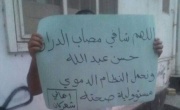 اللهم شافي مصاب الدرا
حسن عبد الله
ونحمل النظام الدموي
مسؤولية صحته
اهالي